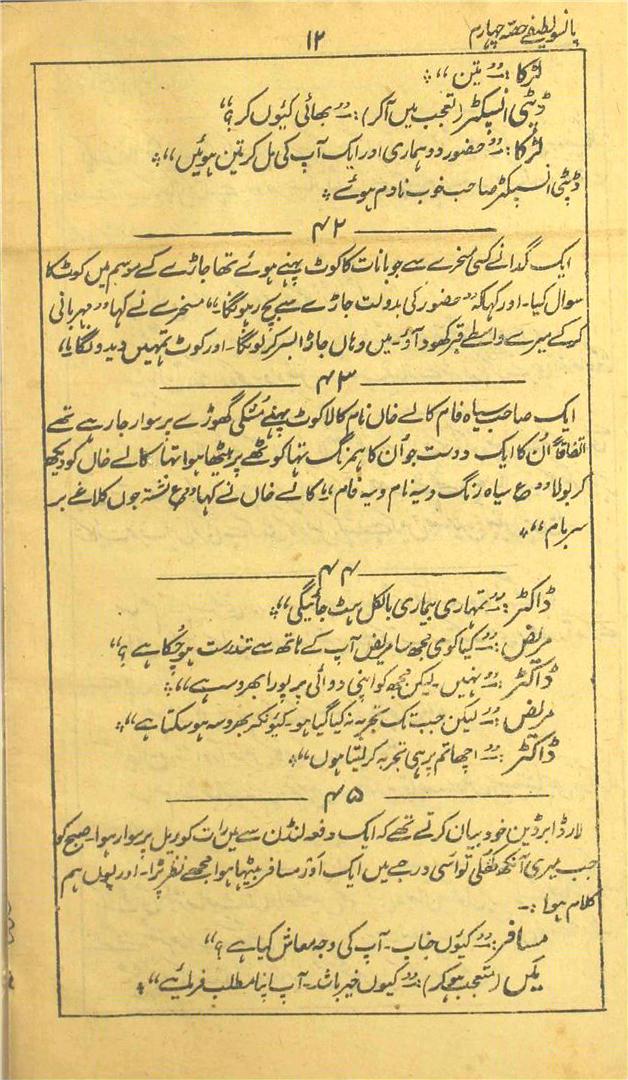 پانسو لطیفے حصّہ چہارم ۱۲
لڑکا :۔ ”تین“ *
ڈپٹی انسپکٹر (تعجب میں آکر) :۔ ”بھائی کیوں کر؟“
لڑکا :۔ ”حضور دو ہماری اور ایک آپ کی مل کر تین ہوئیں“ *
ڈپٹی انسپکٹر صاحب خوب نادم ہوئے *
۴۲
ایک گدا نے کسی مسخرے سے جو بانات کا کوٹ پہنے ہوئے تھا جاڑے کے موسم میں کوٹ کا
سوال کیا۔ اور کہا کہ ”حضور کی بدولت جاڑے سے بچ رہونگا۔“ مسخرے نے کہا ”مہربانی
کر کے میرے واسطے قبر کھود آؤ۔ میں وہاں جاڑا بسر کر لونگا۔ اور کوٹ تمہیں دیدونگا“
۴۳
ایک صاحب سیاہ فام کالے خاں نام کالا کوٹ پہنے مُشکی گھوڑے پر سوار جا رہے تھے
اتفاقاً اُن کا ایک دوست جو اُن کا ہمرنگ تھا کوٹھے پر بیٹھا ہوا تھا کالے خاں کو دیکھ
کر بولا ”ع سیاہ رنگ و سیہ نام و سیہ فام“ کالے خاں نے کہا ”ع نشتہ جوں کلاغے بر
سر بام“ *
۴۴
ڈاکٹر :۔ ”تمہاری بیماری بالکل ہٹ جائیگی“ *
مریض :۔ ”کیا کوی مجھ سا مریض آپ کے ہاتھ سے تندرست ہو چُکا ہے؟“
ڈاکٹر :۔ ”نہیں۔ لیکن مجھ کو اپنی دوائی پر پورا بھروسہ ہے“ *
مریض :۔ ”لیکن جب تک تجربہ نہ کیا گیا ہو۔ کیونکر بھروسہ ہو سکتا ہے“ *
ڈاکٹر :۔ ”اچھا تم پر ہی تجربہ کر لیتا ہوں“ *
۴۵
لارڈ ابرڈین خود بیان کرتے تھے کہ ایک دفعہ لندن سے میں رات کو ریل پر سوار ہوا۔ صبح کو
جب میری آنکھ کُھلی تو اسی درجے میں ایک اَور مسافر بیٹھا ہوا مجھے نظر پڑا۔ اور یوں ہم
کلام ہوا :۔
مسافر :۔ ”کیوں جناب۔ آپ کی وجہ معاش کیا ہے؟“
میں (متعجب ہو کر) :۔ ”کیوں خیر باشد۔ آپ اپنا مطلب فرمائیے“ *